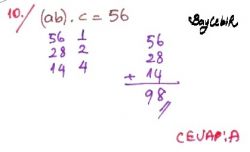 10./ (ab).c = 56
BayCebir
56 1
28 2
14 4
56
28
+ 14
98
CEVAP:A